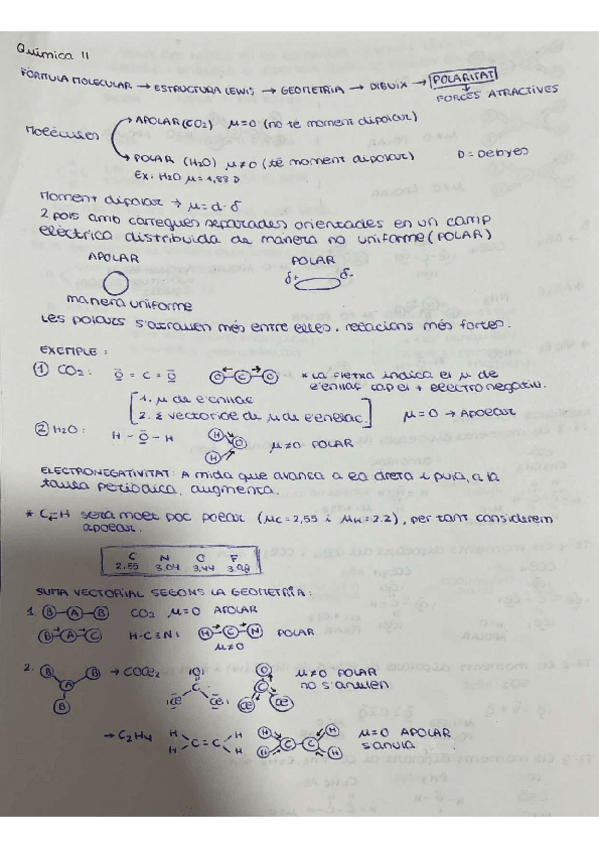 Química 11
FÓRMULA MOLECULAR → ESTRUCTURA LEWIS → GEOMETRIA → DIBUIX → POLARITAT
↓
FORCES ATRACTIVES
APOLAR (CO2) μ=0 (no té moment dipolar)
Molècules
POLAR (H2O) μ≠0 (té moment dipolar) D = Debyes
Ex: H2O μ = 1,83 D
Moment dipolar → μ = d · δ
2 pols amb càrregues separades orientades en un camp
elèctrica distribuida de manera no uniforme (POLAR)
APOLAR POLAR
δ+ δ-
manera uniforme
Les polars s'atrauen més entre elles, relacions més fortes.
EXEMPLE:
① CO2: O = C = O O C O * La fletxa indica el μ de
l'enllaç cap el + electronegatiu.
1. μ de l'enllaç
2. Σ vectorial de μ de l'enllaç μ=0 → Apolar
② H2O: H - O - H H O H μ≠0 POLAR
ELECTRONEGATIVITAT: A mida que avança a la dreta i puja, a la
taula periòdica, augmenta.
* C-H serà molt poc polar (μC = 2,55 i μH = 2.2), per tant considerem
apolar.
C N O F
2.55 3.04 3.44 3.98
SUMA VECTORIAL SEGONS LA GEOMETRIA:
1. B-A-B CO2 μ=0 APOLAR
B-A-C H-C≡N H-C-N POLAR
μ≠0
2. B A B B → COCl2 O C Cl Cl O C Cl Cl μ≠0 POLAR
no s'anulen
→ C2H4 H H C = C H H H H C C H H μ=0 APOLAR
s'anula